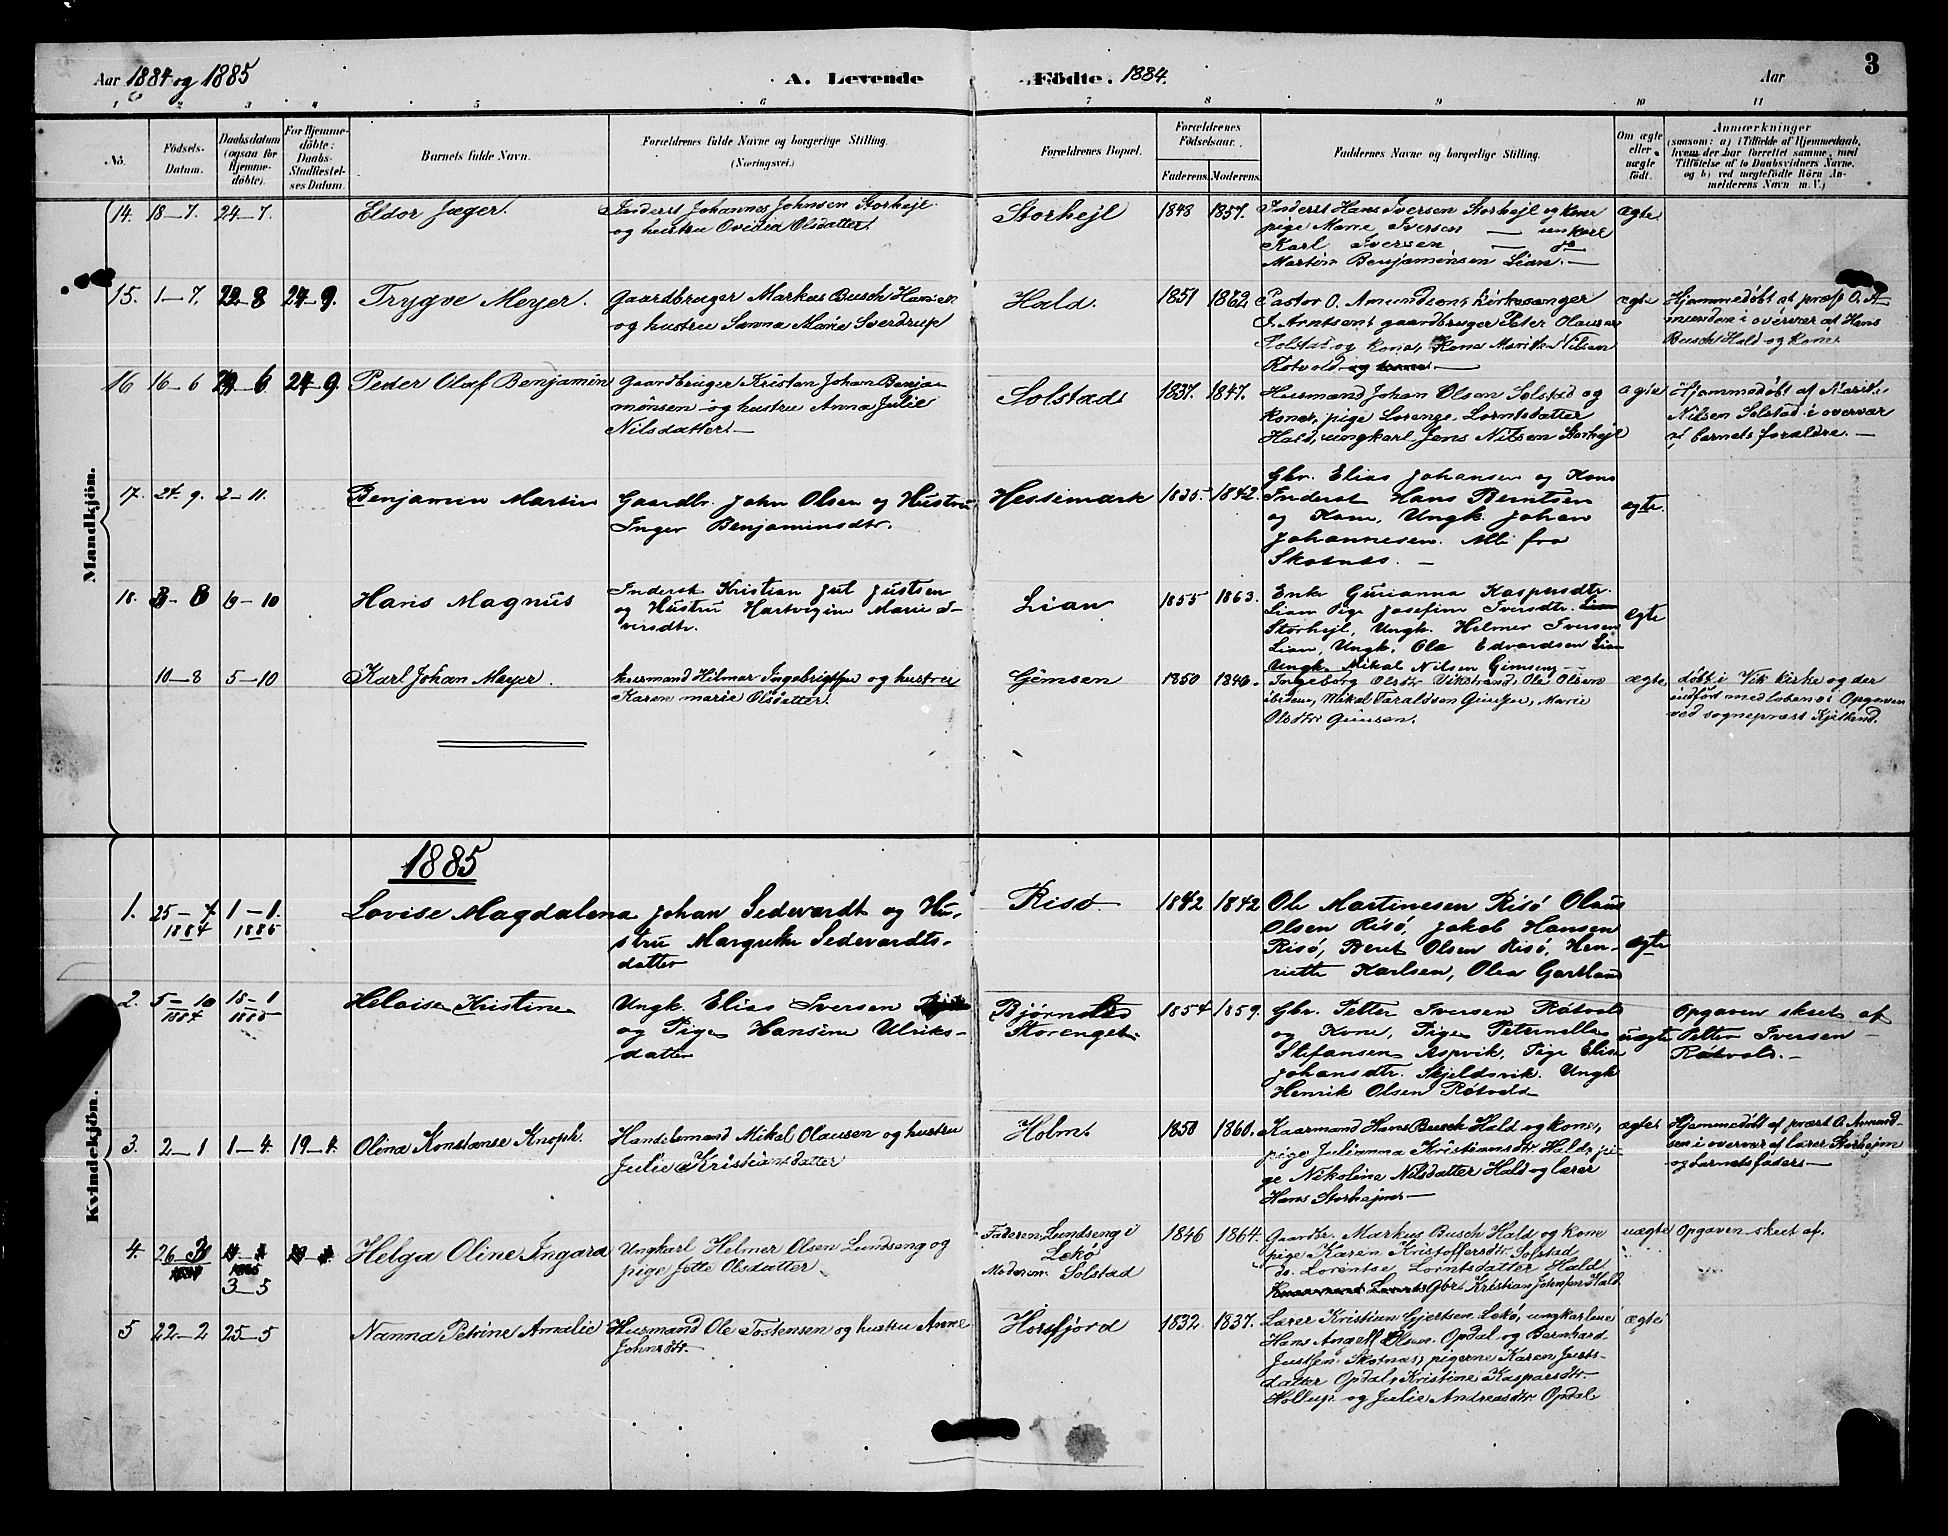 Aar 1884 og 1885 A. Levende Födte. 1884. Aar 3
1 2 3 4 5 6 7 8 9 10 11
No.
Födsels-
Datum.
Daabsdatum
(ogsaa for
Hjemme-
döbte).
For Hjemme-
döbte:
Daabs-
Stadfæstel-
ses Datum.
Barnets fulde Navn.
Forældrenes fulde Navne og borgerlige Stilling.
(Næringsvei.)
Forældrenes Bopæl.
Forældrenes
Födselsaar.
Faderens. Moderens.
Faddernes Navne og borgerlige Stilling.
Om ægte
eller
uægte
födt.
Anmærkninger
(saasom: a) i Tilfælde af Hjemmedaab,
hvem der har forrettet samme, med
Tilföielse af to Daabsvidners Navne,
og b) ved uægtefödte Börn An-
melderens Navn m. V.)
Mandkjön.
14. 18-7. 24-7. Eldor Jæger.
Inderst Johannes Johnsen Storhejl
og hustru Ovidia Olsdatter.
Storhejl 1848 1857.
Inderst Hans Iversen Storhejl og kone
pige Marie Iversen — ungkarl
Karl Iversen — do
Martin Benjaminsen Lian. —
ægte
15. 1-7. 22-8 24-9. Trygve Meyer.
Gaardbruger Markus Busch Hansen
og hustru Sanna Marie Sverdrup
Hald. 1851 1862
Pastor O. Amundsen, kirkesanger
J. Arntsen, gaardbruger Peter Olausen
Solstad og kone, Kone Marit Nilsen
Rotvold og kone. —
ægte
Hjemmedøbt af præst O. A-
mundsen i overvær af Hans
Busch Hald og kone.
16 16-6 6 24-9. Peder Olaf Benjamin
Gaardbruger Kristan Johan Benja-
mønsen og hustru Anna Julie
Nilsdatter. —
Solstad 1837. 1847.
Husmand Johan Olsen Solstad og
kone, pige Lorense Lorntsdatter
Hald, ungkarl Jens Nilsen Storhejl
ægte
Hjemmedøbt af Marit
Nilsen Solstad i overvær
af barnets forældre. —
17. 24. 9. 2-11. Benjamin Martin
Gaardbr. John Olsen og Hustru
Inger Benjaminsdtr.
Hessemark 1835 1842.
Gbr. Elias Johansen og Kone
Inderst Hans Berntsen
og Kone, Ungk. Johan
Johannesen. Alle fra
Skotnes. —
ægte
18. 8 19-10 Hans Magnus
Inderst Kristian Jul Justsen
og Hustru Hartvigine Marie I-
versdtr.
Lian 1855 1863.
Enke Gurianna Kaspersdtr.
Lian Pige Josefine Iversdtr. Lian
Storhejl, Ungk. Helmer Iversen
Lian, Ungk. Ole Edvardsen Lian
Ungk. Mikal Nilsen Gimsen —
ægte
10-8 5-10 Karl Johan Meyer.
husmand Hilmar Ingebrigtsen og hustru
Karen marie Olsdatter.
Gimsen 1850 1846.
Ingeborg Olsdtr Vikstrand, Ole Olsen
ibidem, Mikal Taraldsen Gimsen, Marie
Olsdtr Gimsen.
ægte
døbt i Vik kirke og der
indført med løbeno i Opgaven
ved sogneprest Kjelland.
Kvindekjön.
1885
1. 25-4 1884 1-1. 1885 Lovise Magdalena
Johan Sedevardt og Hu-
stru Margrete Sedevardts-
datter
Risø. 1842 1842
Ole Martinesen Risø Olaus
Olsen Risø, Jakob Hansen
Risø, Beret Olsen Risø, Hen-
riette Karlsen, Olea Gartland
ægte
2. 5-10 1884 18-1 1885 Heloise Kristine
Ungk. Elias Iversen
og Pige Hansine Ulriks-
datter
Bjørnstes
Storenget 1854 1859.
Gbr. Petter Iversen Røtvold
og Kone, Pige Peternella
Stefansen Aspvik, Pige Elise
Johansdtr. Skjeldsvik. Ungk
Henrik Olsen Røtvold
uægte
Opgaven skeet af
Petter Iversen
Røtvold. —
3. 2-1 1-4. 19-4. Olina Konstanse Knoph.
Handelsmand Mikal Olausen og hustru
Julie Kristiansdatter
Holm. 1850 1860.
Kaarmand Hans Busch Hald og kone,
pige Julianna Kristiansdtr. Hald, pi-
ge Nikoline Nilsdatter Hald og lærer
Hans Storhejnes —
ægte
Hjemmedøbt af præst O. Amund-
sen i overvær af lærer Storhejnes
og barnets fader. —
4. 26 1884 1885 3-5 Helga Oline Ingara
Ungkarl Helmer Olsen Lundseng og
pige Jette Olsdatter.
Faderen, Lundseng i
Lekø
Moderen: Solstad 1846 1864.
Gaardbr. Markus Busch Hald og kone
pige Karen Kristoffersdtr. Solstad
do. Lorentse Lorntsdatter Hald
Gbr. Kristian Johnsen Hald
uægte
Opgaven skeet af.
5 22-2 25-5 Nanna Petrine Amalie
Husmand Ole Tostensen og hustru Anne
Johnsdtr.
Horsfjord 1832 1837.
Lærer Kristian Gjertsen Lekø, ungkarlene
Hans Angell Olsen. Opdal og Bernhard
Justsen Skotnes, pigerne Karen Justs-
datter Opdal, Kristine Kaspersdtr.
Hollup og Julie Andreasdtr. Opdal
ægte